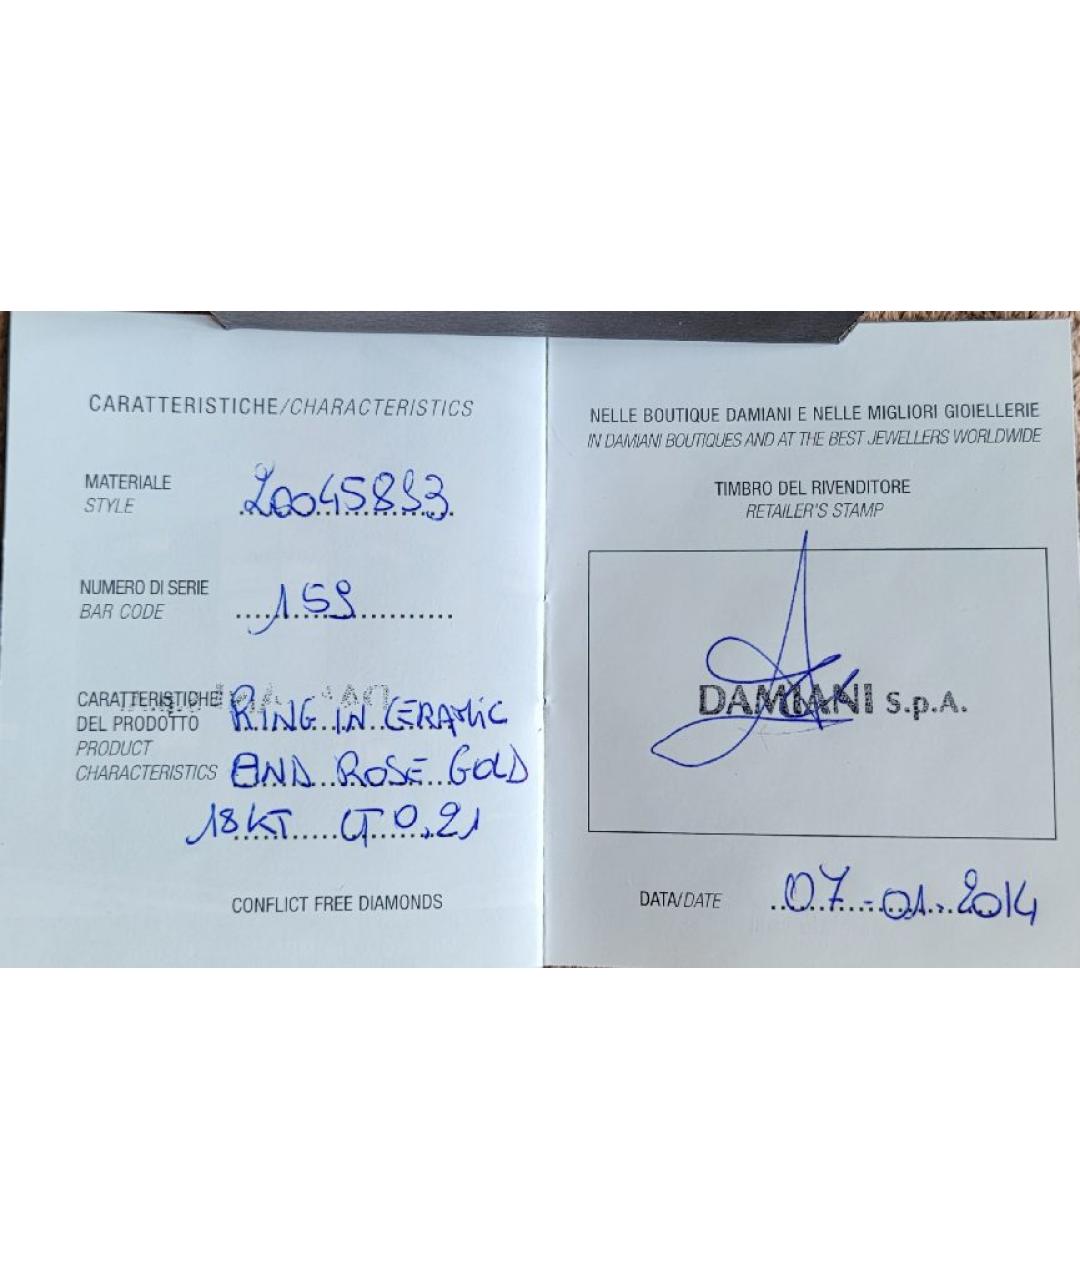 CARATTERISTICHE/CHARACTERISTICS
MATERIALE
STYLE
20045893
NUMERO DI SERIE
BAR CODE
159
CARATTERISTICHE
DEL PRODOTTO
PRODUCT
CHARACTERISTICS
RING IN CERAMIC
AND ROSE GOLD
18KT CT 0,21
CONFLICT FREE DIAMONDS
NELLE BOUTIQUE DAMIANI E NELLE MIGLIORI GIOIELLERIE
IN DAMIANI BOUTIQUES AND AT THE BEST JEWELLERS WORLDWIDE
TIMBRO DEL RIVENDITORE
RETAILER'S STAMP
DAMIANI S.p.A.
DATA/DATE 07-01-2014